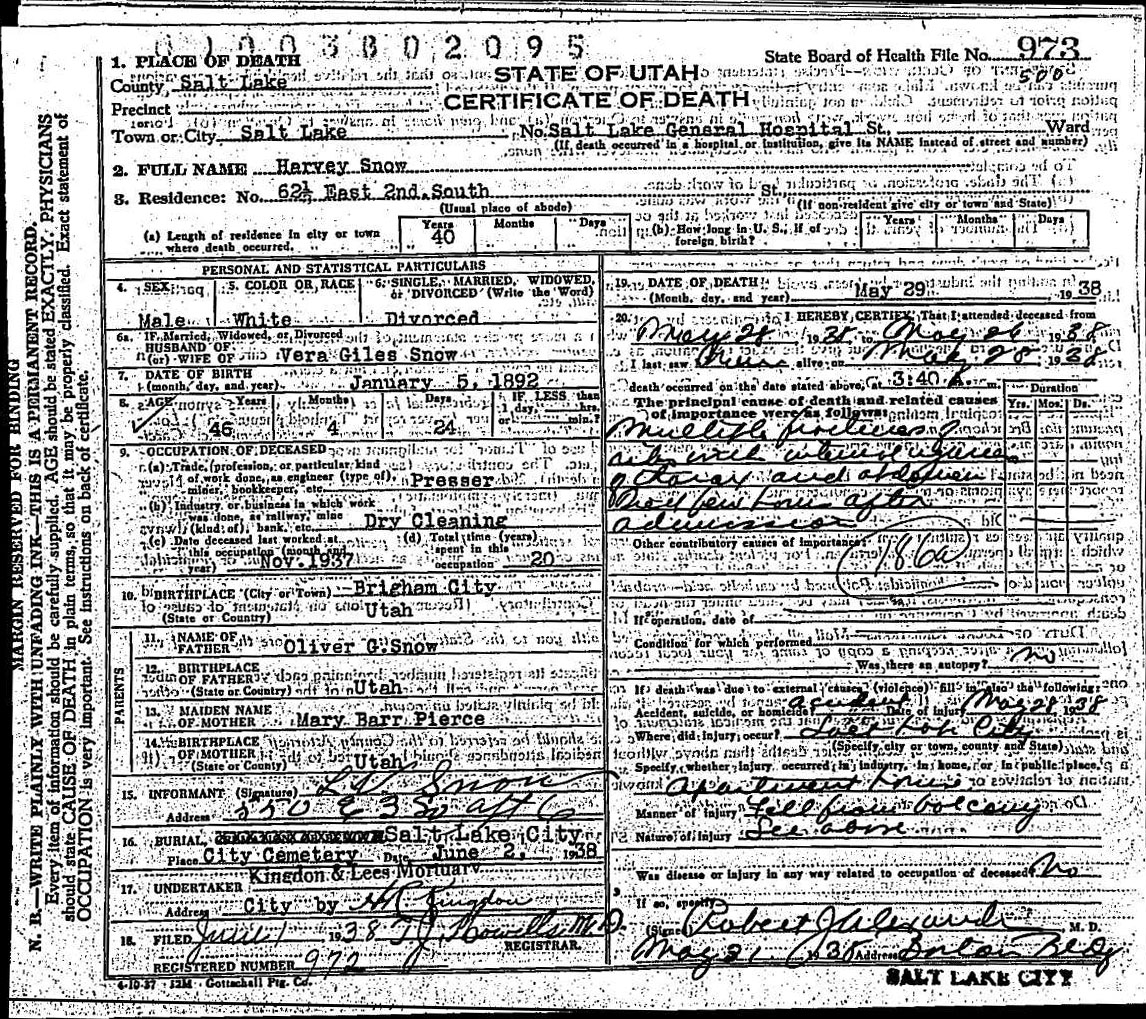 01003802095
State Board of Health File No. 973
500
1. PLACE OF DEATH
STATE OF UTAH
County, Salt Lake
CERTIFICATE OF DEATH
Precinct
Town or City Salt Lake No. Salt Lake General Hospital St., Ward
(If death occurred in a hospital or institution, give its NAME instead of street and number)
2. FULL NAME Harvey Snow
3. Residence: No. 62½ East 2nd. South St.
(Usual place of abode) (If non-resident give city or town and State)
(a) Length of residence in city or town where death occurred. Years 40 Months Days
(b) How long in U. S., if of foreign birth? Years Months Days
PERSONAL AND STATISTICAL PARTICULARS
4. SEX 5. COLOR OR RACE 6. SINGLE, MARRIED, WIDOWED, or DIVORCED (Write the Word)
Male White Divorced
6a. If Married, Widowed, or Divorced
HUSBAND OF
(or) WIFE OF Vera Giles Snow
7. DATE OF BIRTH
(month, day, and year) January 5, 1892
8. AGE Years Months Days IF LESS than
1 day, hrs.
or min.?
46 4 24
9. OCCUPATION OF DECEASED
(a) Trade, profession, or particular kind
of work done, as engineer (type of),
miner, bookkeeper, etc. Presser
(b) Industry or business in which work
was done, as railway, mine
(kind of), bank, etc. Dry Cleaning
(c) Date deceased last worked at
this occupation (month and
year) Nov. 1937
(d) Total time (years)
spent in this
occupation 20
10. BIRTHPLACE (City or Town) Brigham City
(State or Country) Utah
PARENTS
11. NAME OF
FATHER Oliver G. Snow
12. BIRTHPLACE
OF FATHER
(State or Country) Utah
13. MAIDEN NAME
OF MOTHER Mary Barr Pierce
14. BIRTHPLACE
OF MOTHER
(State or Country) Utah
15. INFORMANT (Signature) Snow
Address 550 E 3 So apt 6
16. BURIAL, Salt Lake City
Place City Cemetery Date June 2, 1938
Kingdon & Lees Mortuary
17. UNDERTAKER
Address City by Kingdon
18. FILED June 1 1938 M.D.
REGISTRAR.
REGISTERED NUMBER 972
4-10-37 12M - Gottschall Ptg. Co.
19. DATE OF DEATH
(Month, day, and year) May 29 1938
20. I HEREBY CERTIFY, That I attended deceased from
May 28 1938 to May 28 1938
I last saw him alive on May 28 1938
death occurred on the date stated above, at 3:40 A. m.
The principal cause of death and related causes
of importance were as follows: Duration
Yrs. Mos. Ds.
Multiple fractures of
ribs with internal injuries
of thorax and abdomen
Died few hours after
admission
Other contributory causes of importance:
186a
If operation, date of
Condition for which performed
Was there an autopsy? no
If death was due to external causes (violence) fill in also the following:
Accident, suicide, or homicide? accident Date of injury May 28 1938
Where did injury occur? Salt Lake City
(Specify city or town, county and State)
Specify whether injury occurred in industry, in home, or in public place,
Apartment house
Manner of injury Fell from balcony
Nature of injury See above
Was disease or injury in any way related to occupation of deceased? No
If so, specify
(Signed) Robert J Alexander M. D.
May 31 1938 Address Boston Bldg
SALT LAKE CITY
MARGIN RESERVED FOR BINDING
N. B.—WRITE PLAINLY WITH UNFADING INK—THIS IS A PERMANENT RECORD.
Every item of information should be carefully supplied. AGE should be stated EXACTLY. PHYSICIANS
should state CAUSE OF DEATH in plain terms, so that it may be properly classified. Exact statement of
OCCUPATION is very important. See instructions on back of certificate.